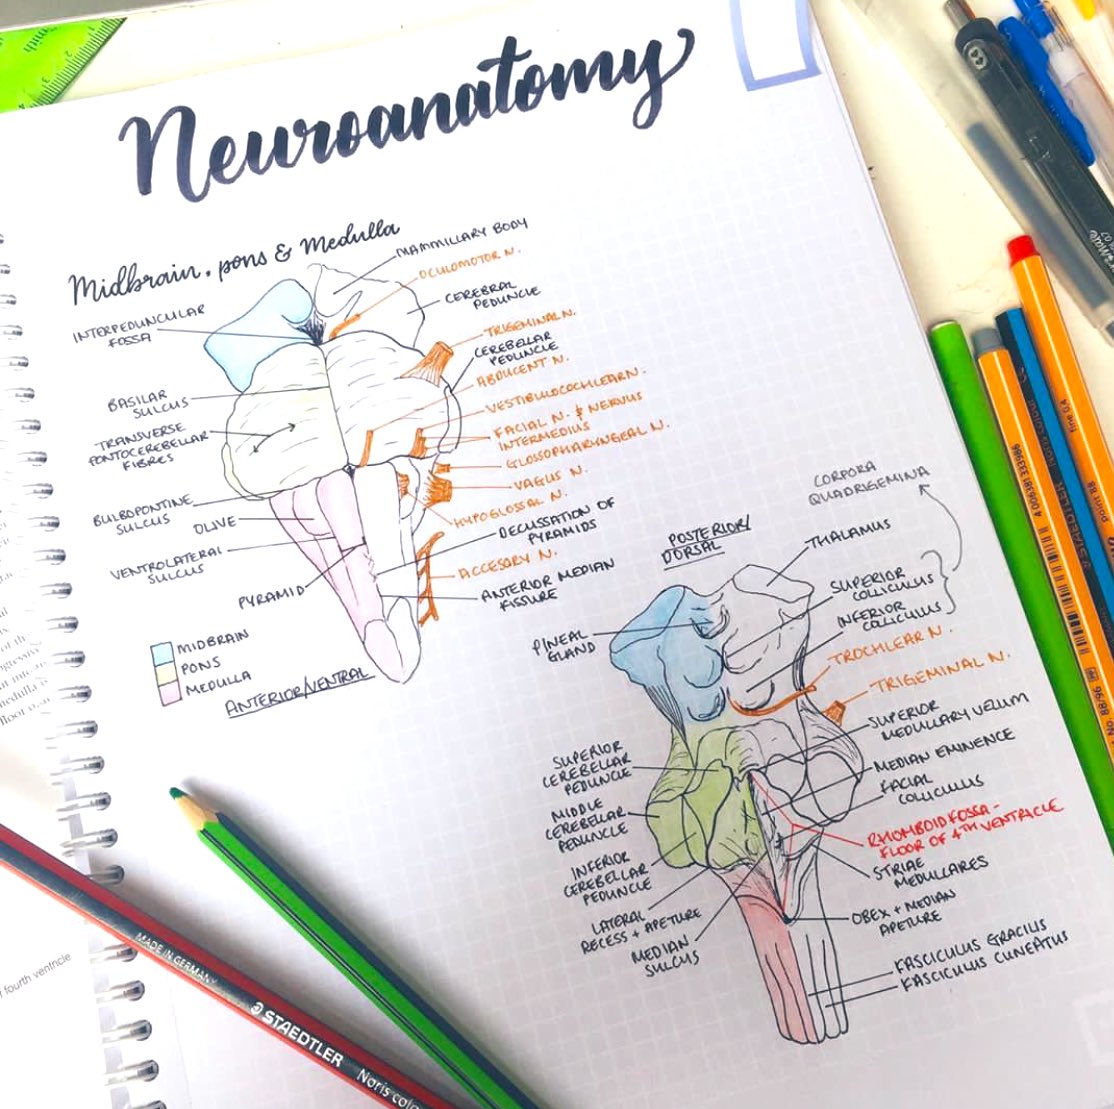 Neuroanatomy
Midbrain, pons & Medulla
MAMMILLARY BODY
OCULOMOTOR N.
CEREBRAL
PEDUNCLE
INTERPEDUNCULAR
FOSSA
TRIGEMINAL N.
CEREBELLAR
PEDUNCLE
ABDUCENT N.
BASILAR
SULCUS
VESTIBULOCOCHLEAR N.
TRANSVERSE
PONTOCEREBELLAR
FIBRES
FACIAL N. & NERVUS
INTERMEDIUS
GLOSSOPHARYNGEAL N.
VAGUS N.
HYPOGLOSSAL N.
BULBOPONTINE
SULCUS
OLIVE
DECUSSATION OF
PYRAMIDS
VENTROLATERAL
SULCUS
ACCESORY N.
PYRAMID
ANTERIOR MEDIAN
FISSURE
MIDBRAIN
PONS
MEDULLA
ANTERIOR/VENTRAL
CORPORA
QUADRIGEMINA
POSTERIOR/
DORSAL
THALAMUS
SUPERIOR
COLLICULUS
INFERIOR
COLLICULUS
PINEAL
GLAND
TROCHLEAR N.
TRIGEMINAL N.
SUPERIOR
MEDULLARY VELUM
SUPERIOR
CEREBELLAR
PEDUNCLE
MEDIAN EMINENCE
FACIAL
COLLICULUS
MIDDLE
CEREBELLAR
PEDUNCLE
RHOMBOID FOSSA -
FLOOR OF 4TH VENTRICLE
INFERIOR
CEREBELLAR
PEDUNCLE
STRIAE
MEDULLARES
LATERAL
RECESS + APETURE
OBEX + MEDIAN
APETURE
MEDIAN
SULCUS
FASCICULUS GRACILIS
FASCICULUS CUNEATUS
fourth ventricle
MADE IN GERMANY
STAEDTLER
Noris colo
STAEDTLER
point 88
fine 0,4
88/96